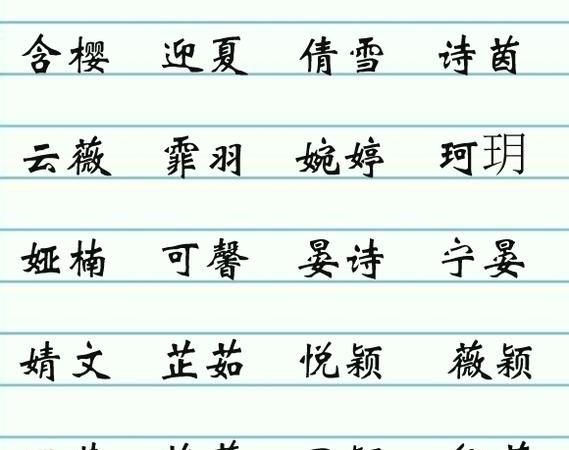 含樱 迎夏 倩雪 诗茵
云薇 霏羽 婉婷 珂玥
娅楠 可馨 晏诗 宁晏
婧文 芷茹 悦颖 薇颖